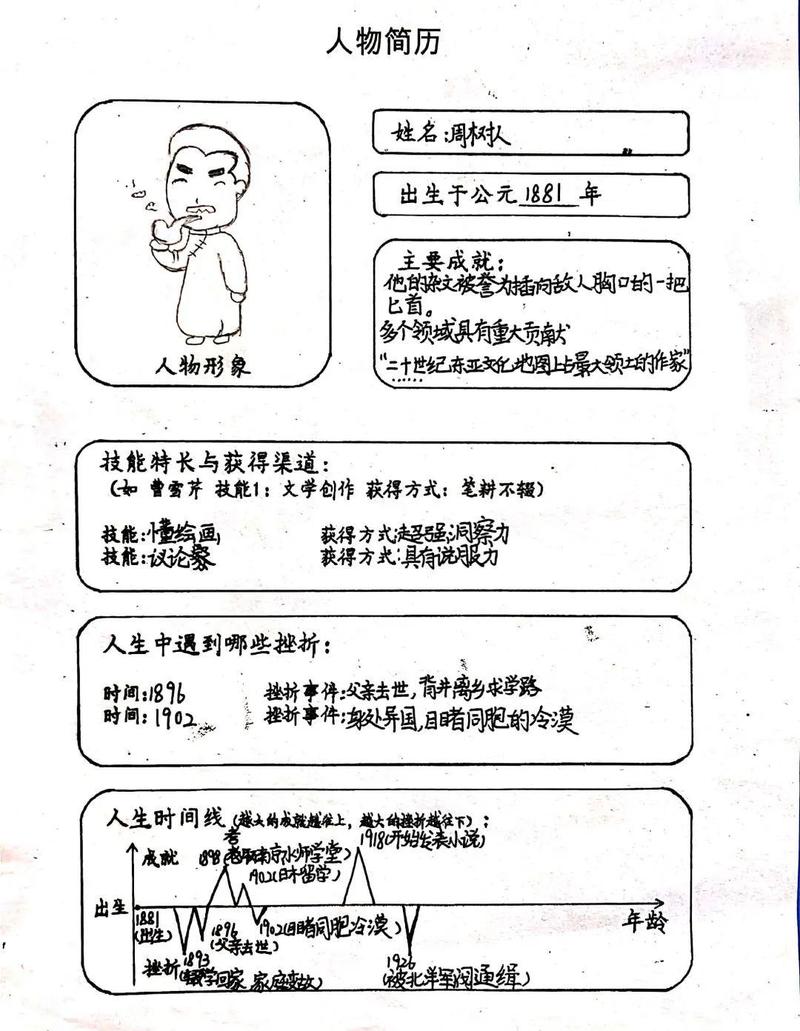 人物简历
人物形象
姓名:周树人
出生于公元1881年
主要成就:
他的杂文被誉为插向敌人胸口的一把
匕首。
多个领域具有重大贡献
“二十世纪东亚文化地图上占最大领土的作家”
技能特长与获得渠道:
(如 曹雪芹 技能1: 文学创作 获得方式: 笔耕不辍)
技能:懂绘画
获得方式:超强洞察力
技能:议论
获得方式:具有说服力
人生中遇到哪些挫折:
时间:1896
挫折事件:父亲去世,背井离乡求学路
时间:1902
挫折事件:身处异国,目睹同胞的冷漠
人生时间线(越大的成就越往上,越大的挫折越往下):
成就
1898(考取南京水师学堂)
1918(开始发表小说)
1902(日本留学)
出生
年龄
1881
(出生)
1896
(父亲去世)
1902(目睹同胞冷漠)
挫折
1893
回家 家庭变故)
1926
(被北洋军阀通缉)